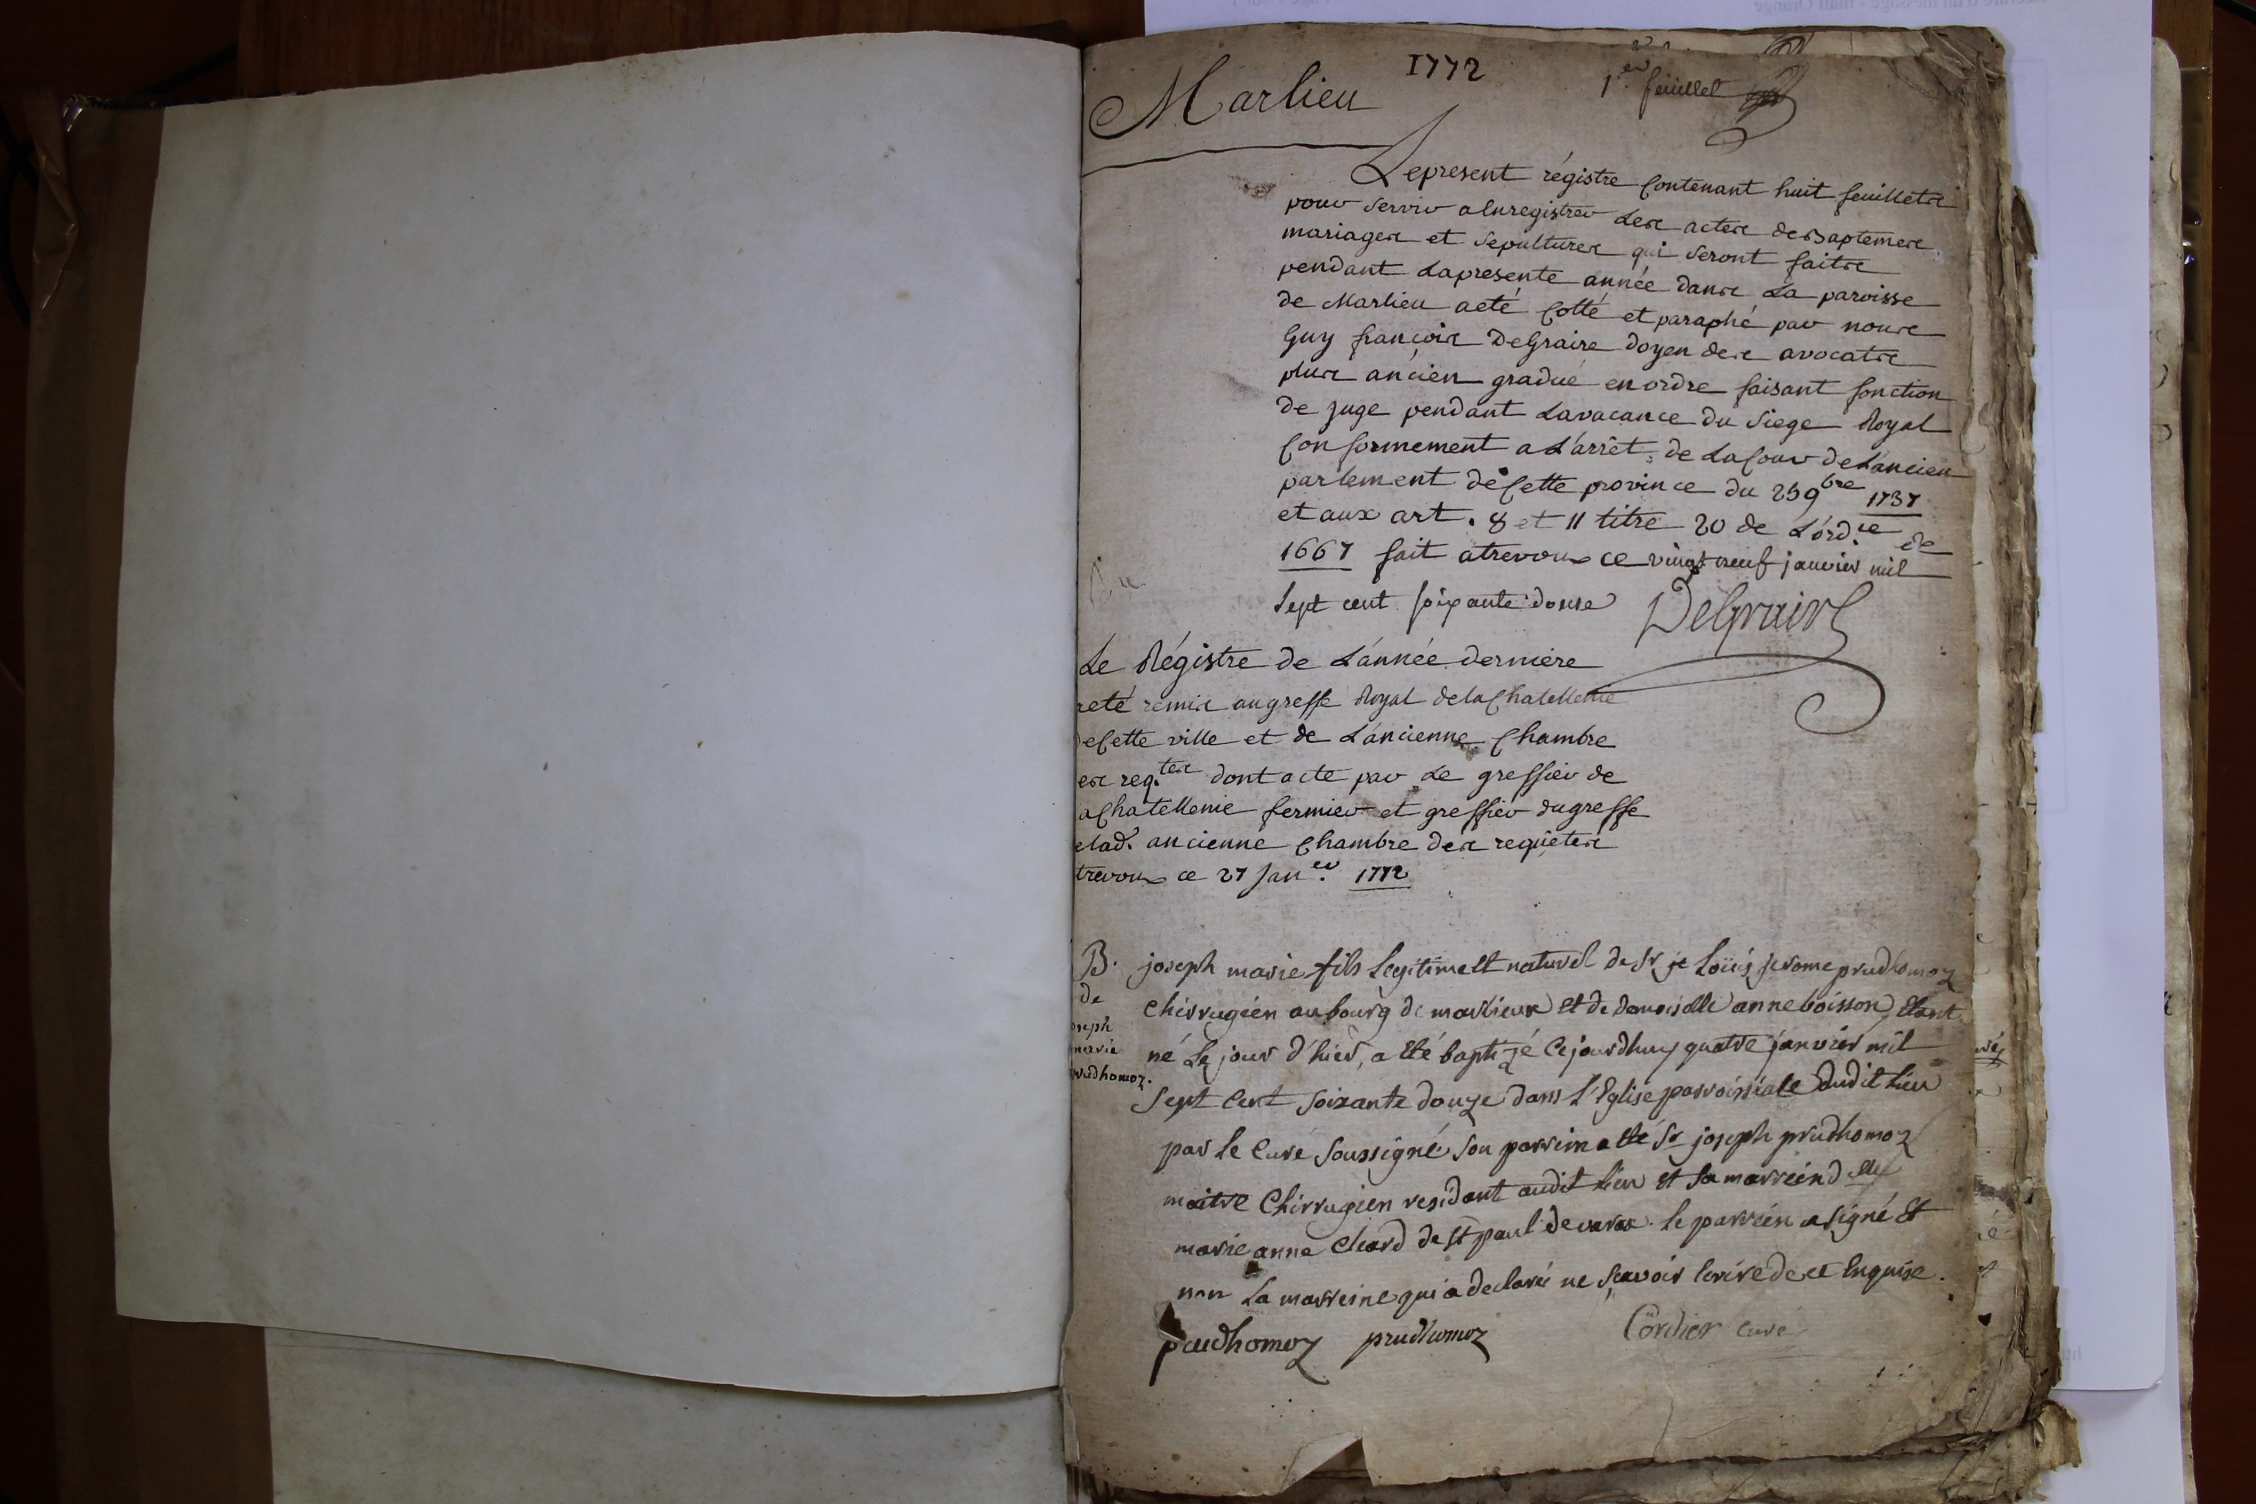 1772
Marlieu
1.er feuillet
Le present régistre contenant huit feuillets
pour servir a enregistrer Les actes de Baptemes
mariages et sepultures qui seront faits
pendant La presente année dans La paroisse
de Marlieu a eté Cotté et paraphé par nous
Guy françois DeGraire doyen des avocats
plus ancien gradué en ordre faisant fonction
de juge pendant La vacance du siege Royal
Conformement a L'arrêt de La Cour de L'ancien
parlement de Cette province du 25 9bre 1737
et aux art. 8 et 11 titre 20 de L'ord.ce de
1667 fait a trevoux ce vingt neuf janvier mil
sept cent soixante douse
DeGraire
Le Régistre de L'année derniere
a eté remis au greffe Royal de la Chatellenie
de Cette ville et de L'ancienne Chambre
es req.tes dont acte par Le greffier de
a Chatellenie fermier et greffier du greffe
e lad. ancienne Chambre des requêtes
trevoux ce 27 Jan.er 1772
B.
de
oseph
marie
prudhomoz.
joseph marie fils Legitime et naturel de Sr je Loüis jerome prudhomoz
chirrugién au bourg de marlieux et de demoiselle anne boisson, etant
né Le jour d'hier, a eté baptizé Cejourdhuy quatre janvier mil
sept cent soixante douze dans l'Eglise parroissiale dudit lieu
par le curé soussigné son parrein a eté Sr joseph prudhomoz
maitre Chirrugien residant audit lieu et sa marreine d.elle
marie anne Chard de St paul de varax. le parrein a signé et
non La marreine qui a declaré ne sçavoir écrire de ce enquise.
prudhomoz prudhomoz Cordier curé